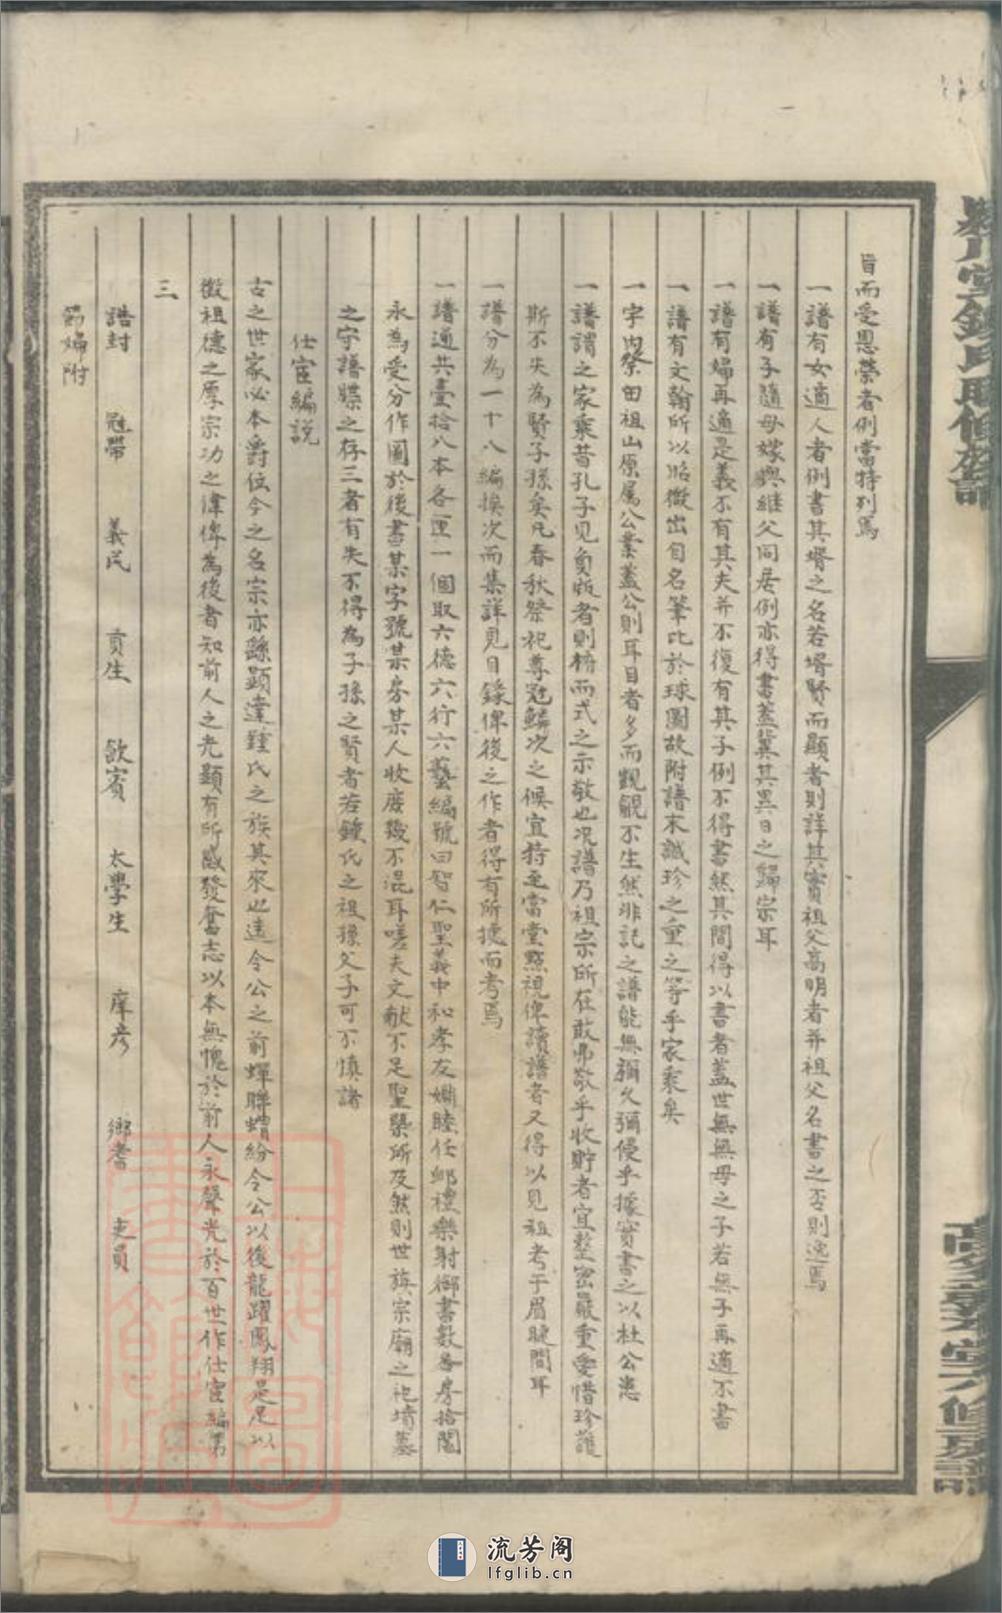 旨而受恩榮者例當特列焉
一譜有女適人者例書其壻之名若壻賢而顯者則詳其實祖父高明者并祖父名書之否則逸焉
一譜有子隨母嫁與繼父同居例亦得書蓋冀其異日之歸宗耳
一譜有婦再適是義不有其夫并不復有其子例不得書然其間得以書者蓋世無無母之子若無子再適不書
一譜有文翰所以昭徵出自名筆比於球圖故附譜末誠珍之重之等乎家乘矣
一字內祭田祖山原属公業蓋公則耳目者多而觀覦不生然非記之譜能無彌久彌侵乎據實書之以杜公患
一譜謂之家乘昔孔子見負版者則 而式之示敬也况譜乃祖宗所在敢弗敬乎收貯者宜整密嚴重受惜珍護
斯不失為賢子孫矣凡春秋祭祀尊冠鱗次之候宜持至當堂點視俾讀譜者又得以見祖考于眉睫間耳
一譜分為一十八編挨次而集詳見目錄俾後之作者得有所據而考焉
一譜通共壹拾八本各匣一個取六德六行六藝編號曰智仁聖義中和孝友婣睦任卹禮樂射御書數各房拾鬮
永為受分作圖於後書某字號某房某人收庶幾不混耳嗟夫文献不足聖 所及然則世族宗廟之祀墳墓
之守譜牒之存三者有失不得為子孫之賢者若鍾氏之祖孫父子可不慎諸
仕宦編説
古之世家必本爵位今之名宗亦繇顕達鍾氏之族其來也遠令公之前蟬聯蝟紛令公以後龍躍鳳翔足足以
徵祖德之厚宗功之偉俾為後者知前人之光顯有所感發奮志以本無愧於前人永聲光於百世作仕宦編第
三
誥封 冠帶 義民 貢生 飲賓 太學生 庠彦 鄉耆 吏員
節婦附
流芳阁
lfglib.cn